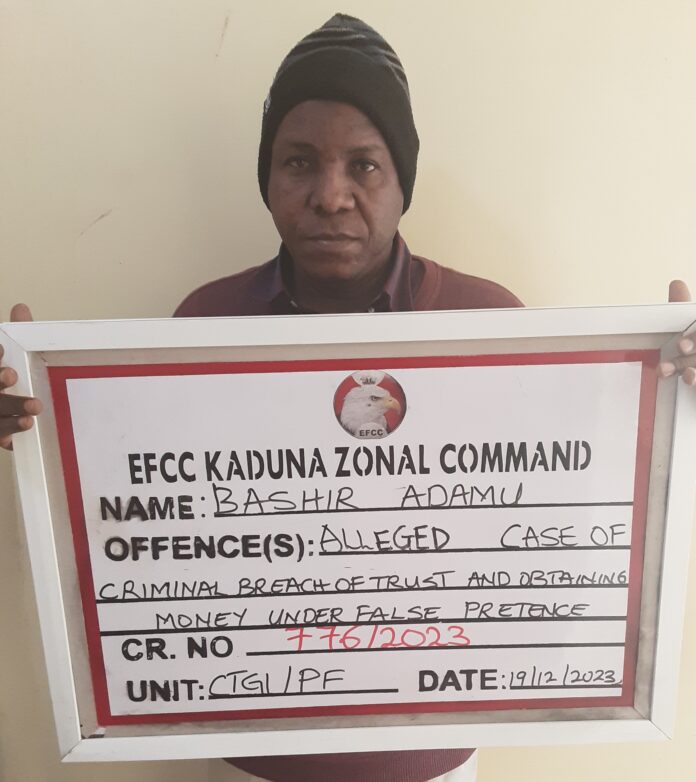 EFCC
EFCC KADUNA ZONAL COMMAND
NAME: BASHIR ADAMU
OFFENCE(S): ALLEGED CASE OF
CRIMINAL BREACH OF TRUST AND OBTAINING
MONEY UNDER FALSE PRETENCE
CR. NO 776/2023
UNIT: CTGI/PF DATE: 19/12/2023